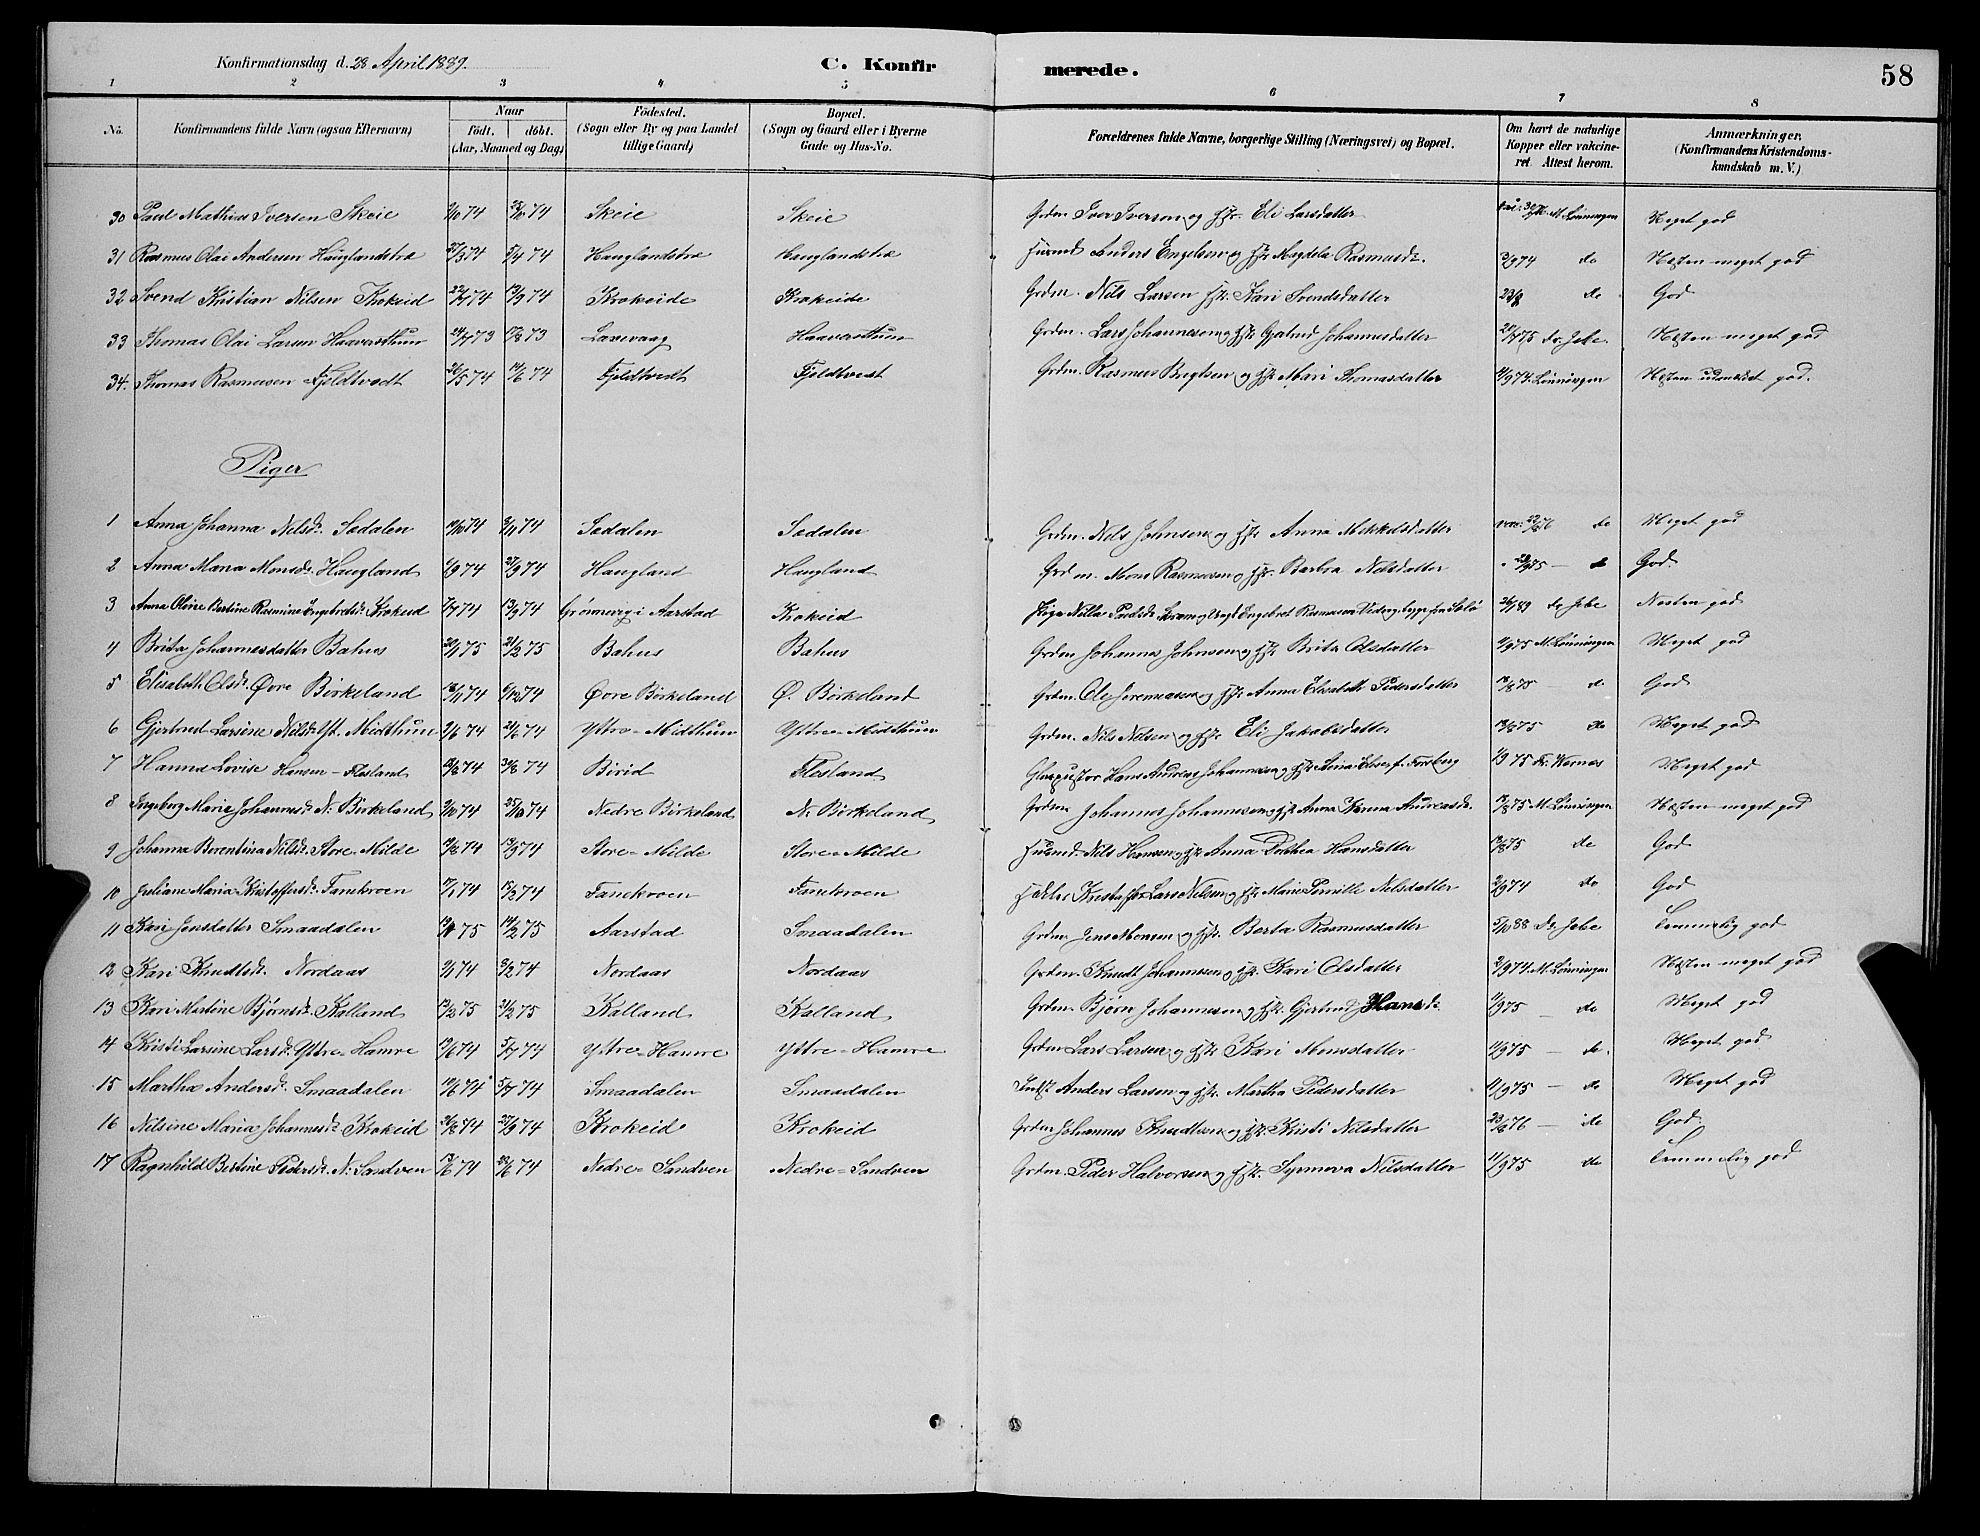 Konfirmationsdag d. 28 April 1889.
C. Konfirmerede.
58
1 2 3 4 5 6 7 8
No.
Konfirmandens fulde Navn (ogsaa Efternavn)
Naar
födt. döbt.
(Aar, Maaned og Dag)
Födested.
(Sogn eller By og paa Landet
tillige Gaard)
Bopæl.
(Sogn og Gaard eller i Byerne
Gade og Hus-No.
Forældrenes fulde Navne, borgerlige Stilling (Næringsvei) og Bopæl.
Om havt de naturlige
Kopper eller vakcine-
ret. Attest herom.
Anmærkninger.
(Konfirmandens Kristendoms-
kundskab m. V.)
30 Paul Mathias Iversen Skeie 9/10 74 74 Skeie Skeie Grdm. Iver Iversen og Hstr. Eli Larsdatter M. Lönningen Meget god
31 Rasmus Olai Andersen Hauglandstræ 27/3 74 5/4 74 Hauglandstræ Hauglandstræ Husmd. Anders Engelsen og Hstr. Magdela Rasmusdr. 74 do Næsten meget god
32 Svend Kristian Nilsen Krokeid 22/7 74 13/9 74 Krokeide Krokeide Grdm. Nils Larsen Hstr. Kari Svendsdatter 23/8 do God
33 Thomas Olai Larsen Haavardthun 24/7 73 17/8 73 Laxevaag Haavardthun Grdm. Lars Johannesen og Hstr. Gjertrud Johannesdatter 75 Dr. Jebe Næsten meget god
34. Thomas Rasmussen Fjeldtvedt 26/5 74 14/6 74 Fjeldtvedt Fjeldtvedt Grdm. Rasmus Brigtsen og Hstr. Mari Thomasdatter 11/9 74. Lönningen Næsten udmærket god.
Piger
1 Anna Johanna Nilsdr. Sædalen 19/10 74 8/11 74 Sædalen Sædalen Grdm. Nils Johnsen og Hstr. Anna Mikkelsdatter 76 do Meget god
2 Anna Maria Monsdr. Haugland 6/9 74 27/9 74 Haugland Haugland Grdm. Mons Rasmussen og Hstr. Barbra Nilsdatter 75 — do God.
3 Anna Oline Bertine Rasmine Engebretsdr. Krokeid 7/7 74 13/9 74 Grönnevig i Aarstad Krokeid Pige Nilla Paulsdr. og Ungk. Engebret Rasmussen 89 Dr. Jebe Næsten god
4 Brita Johannesdatter Bahus 20/1 75 21/2 75 Bahus Bahus Grdm. Johannes Johnsen og Hstr. Brita Olsdatter 11/9 75 M. Lönningen Meget god
5 Elisabeth Olsdr. Øvre Birkeland 13/11 74 6/12 74 Øvre Birkeland Ø. Birkeland Grdm. Ole Jeremiasen og Hstr. Anna Elisabeth Pedersdatter 75 — do God
6 Gjertrud Larsine Nilsdr. Yt. Midthun 2/6 74 21/6 74 Ytre-Midthun Ytre-Midthun Grdm. Nils Nilsen og Hstr. Eli Jakobsdatter 75 do Meget god
7 Hanna Lovise Hansen-Flesland 74 74 Birid Flesland Hans Andreas Johannesen og Hstr. 75 Meget god
8 Ingeborg Maria Johannesdr. N. Birkeland 9/10 74 25/10 74 Nedre Birkeland N. Birkeland Grdm. Johannes Johannesen og Hstr. Anna Andreasdr. 75 M. Lönningen Næsten meget god
9 Johanna Berentina Nilsdr. Store-Milde 74 13/9 74 Store-Milde Store-Milde Husmd. Nils Hansen og Hstr. Anna Dorthea Hansdatter 75 do God
10 Juliane Maria Kristoffersdr. Fanekroen 17/1 74 15/2 74 Fanekroen Fanekroen Kristoffer Lars Nilsen og Hstr. Marie Pernille Nilsdatter 74 do God
11 Kari Jensdatter Smaadalen 75 14/2 75 Aarstad Smaadalen Grdm. Jens Monsen og Hstr. Berta Rasmusdatter 5/10 88 Dr. Jebe Temmelig god
12 Kari Knudtsdr. Nordaas 9/1 74 8/2 74 Nordaas Nordaas Grdm. Knudt Johannesen og Hstr. Kari Olsdatter 74 M. Lönningen Næsten meget god
13 Kari Martine Bjørnsdr. Kalland 75 21/2 75 Kalland Kalland Grdm. Bjørn Johannesen og Hstr. Gjertrud Hansdr. 11/9 75 do Meget god
14 Kristi Larsine Larsdr. Ytre-Hamre 19/6 74 5/7 74 Ytre-Hamre Ytre-Hamre Grdm Lars Larsen og Hstr. Kari Monsdatter 11/9 75 — do. Meget god
15 Martha Andersdr. Smaadalen 19/6 74 5/7 74 Smaadalen Smaadalen Indst Anders Larsen og Hstr. Martha Pedersdatter 11/9 75 — do Meget god
16 Nilsine Maria Johannesdr. Krokeid 26/8 74 27/9 74 Krokeid Krokeid Grdm Johannes Knudtsen og Hstr. Kristi Nilsdatter 76 — do God.
17 Ragnhild Bertine Pedersdr. N. Sandven 74 74 Nedre-Sandven Nedre-Sandven Grdm. Peder Halvorsen og Hstr. Synneva Nilsdatter 11/9 75 do Temmelig god